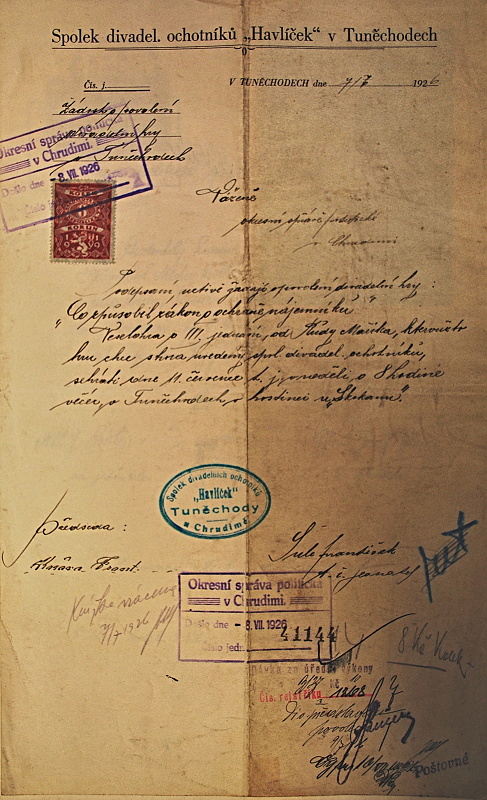 Spolek divadel. ochotníků „Havlíček“ v Tuněchodech
Čís. j.
V TUNĚCHODECH dne 7/7 1926
Žádost o povolení
divadelní hry
v Tuněchodech
Okresní správa politická
v Chrudimi.
Došlo dne - 8. VII. 1926
Číslo
KOLEK
KORUN
Vážené
okresní správě politické
v Chrudimi
Podepsaní uctivě žádají o povolení divadelní hry:
„Co způsobil zákon o ochraně nájemníků“
Veselohra o III. jednání, od Rudy Maříka, kteroužto
hru chce shora uvedený spol. divadel. ochotníků,
sehráti dne 11. července t. j. v neděli o 8 hodině
večer, v Tuněchodech, v hostinci u
Spolek divadelních ochotníků
„Havlíček“
Tuněchody
u Chrudimě
Předseda:
František
t. č. jednatel
7/7 1926
Okresní správa politická
v Chrudimi.
Došlo dne - 8. VII. 1926
Číslo jedn. 41144
8 Kč
Dávka za úřed. výkony
Kč
Čís. rejstříku
Poštovné